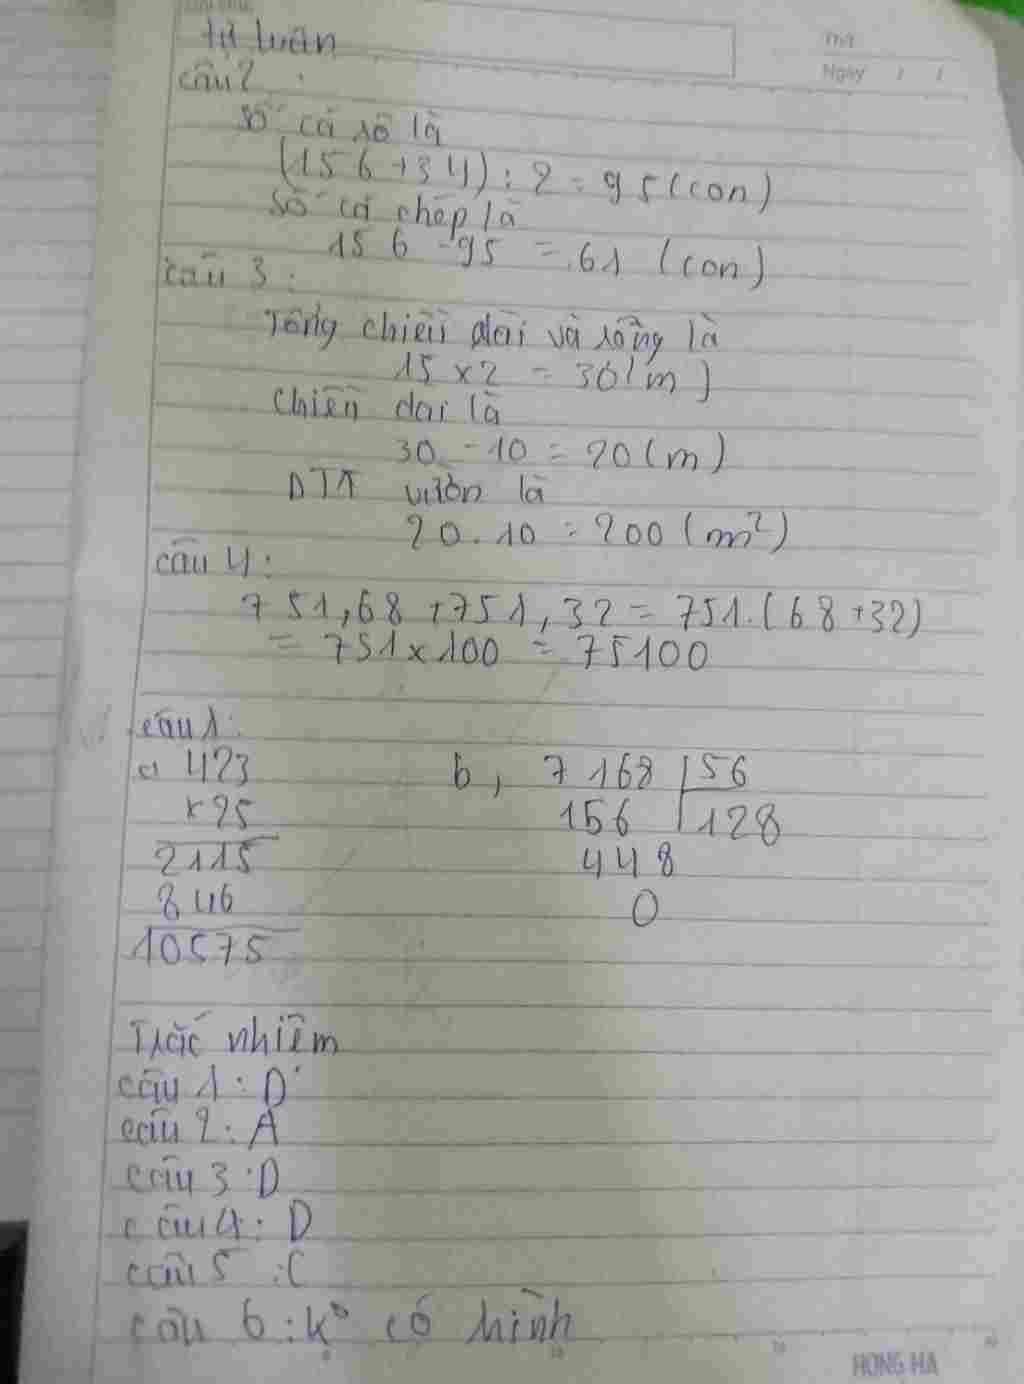 Thứ
Ngày / /
tự luân
câu 2:
Số cá rô là
(156+34):2=95(con)
Số cá chép là
156-95=61(con)
câu 3:
Tổng chiều dài và rộng là
15x2=30(m)
chiều dài là
30-10=20(m)
DT vườn là
20.10=200(m²)
câu 4:
751,68+751,32=751.(68+32)
=751x100=75100
câu 1:
a 423
x25
2115
846
10575
b, 7168 56
156 128
448
0
Trắc nhiệm
câu 1: D
câu 2: A
câu 3: D
câu 4: D
câu 5: C
câu 6: k⁰ có hình
HONG HA